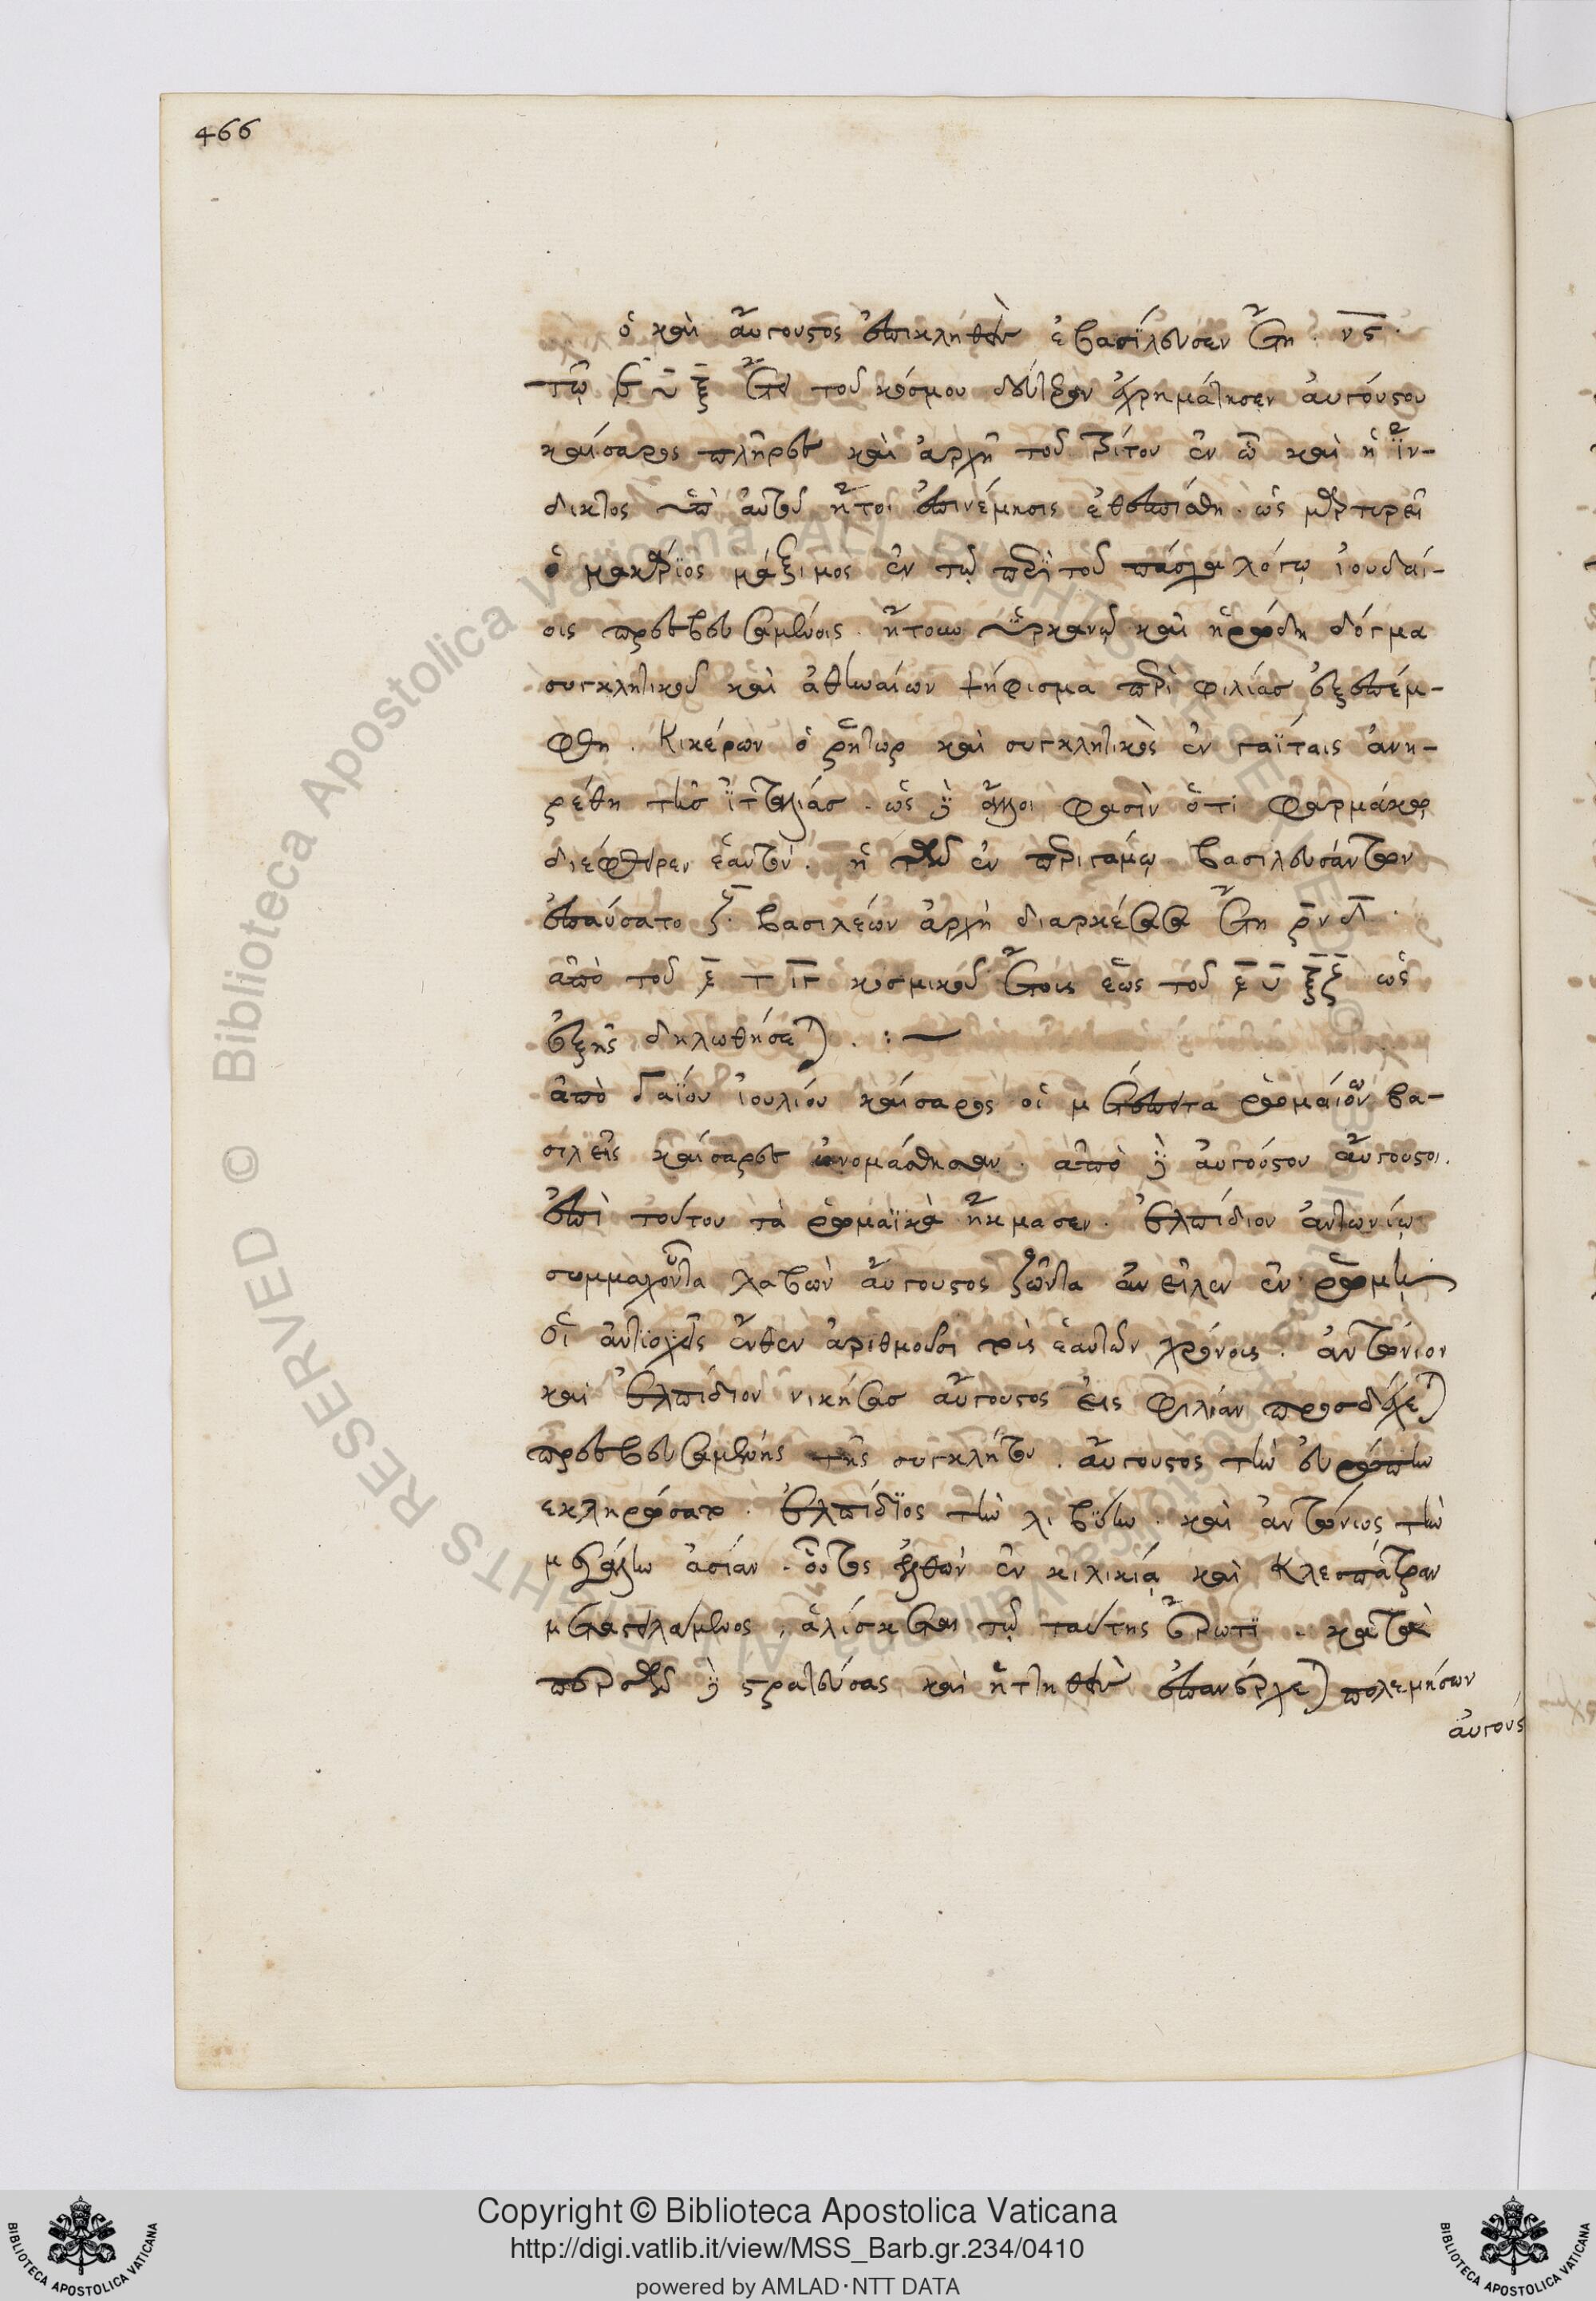 466
ὁ καὶ αὔγουστος ἐπικληθεὶς ἐβασίλευσεν ἔτη. ν̅ς̅.
τῷ ε̅ υ̅ ξ̅ ἔτει τοῦ κόσμου δεύτερον ἐχρημάτησεν ἀυγούστου
καίσαρος πλῆρες καὶ ἀρχὴ τοῦ τρίτου ἐν ᾧ καὶ ἡ ἴν-
δικτος ὑπ' αὐτοῦ ἤτοι ἐπινέμησις ἐθεσπίσθη. ὡς μαρτυρεῖ
ὁ μακάριος μάξιμος ἐν τῷ περὶ τοῦ πάσχα λόγῳ ἰουδαί-
οις πρεσβευσαμένοις. ἤγουν ὑρκανῷ καὶ ἡρώδη δόγμα
συγκλητικοῦ καὶ ἀθηναίων ψήφισμα περὶ φιλίας ἐξεπέμ-
φθη. Κικέρων ὁ ῥήτωρ καὶ συγκλητικὸς ἐν γαΐταις ἀνη-
ρέθη τῆς ἰταλίας. ὡς δὲ ἄλλοι φασὶν ὅτι φαρμάκῳ
διέφθειρεν ἑαυτόν. ἡ τῶν ἐν περιγάμῳ βασιλευσάντων
ἐπαύσατο ζ̅. βασιλέων ἀρχὴ διαρκέσασα ἔτη ρ̅ν̅δ̅.
ἀπὸ τοῦ ε̅ τ̅ ι̅γ̅ κοσμικοῦ ἔτους ἕως τοῦ ε̅ υ̅ ξ̅ζ̅ ὡς
ἑξῆς δηλωθήσεται. :—
ἀπὸ Γαΐου ἰουλίου καίσαρος οἱ μετέπειτα ῥωμαίων βα-
σιλεῖς καίσαρες ὠνομάσθησαν. ἀπὸ δὲ ἀυγούστου αὔγουστοι.
ἐπὶ τούτου τὰ ῥωμαϊκὰ ἤκμασεν. ἐλπίδιον ἀντωνίῳ
συμμαχοῦντα λαβὼν αὔγουστος ζῶντα ἀνεῖλεν ἐν ῥώμῃ
οἱ ἀντιοχεῖς ἔνθεν ἀριθμοῦσι τοὺς ἑαυτῶν χρόνους. ἀντώνιον
καὶ ἐλπίδιον νικήσας αὔγουστος εἰς φιλίαν προσδέχεται
πρεσβευσαμένης τῆς συγκλήτου. αὔγουστος τὴν εὐρώπην
εκληρώσατο. ἐλπίδιος τὴν λιβύην. καὶ ἀντώνιος τὴν
μεγάλην ἀσίαν. οὗτος ἐλθὼν ἐν κιλικίᾳ καὶ Κλεοπάτραν
μεταστειλάμενος, ἁλίσκεται τῷ ταύτης ἔρωτι. κατὰ
περσῶν δὲ στρατεύσας καὶ ἡττηθεὶς ἐπανέρχεται πολεμήσων
ἀυγούς
Copyright © Biblioteca Apostolica Vaticana
http://digi.vatlib.it/view/MSS_Barb.gr.234/0410
powered by AMLAD·NTT DATA